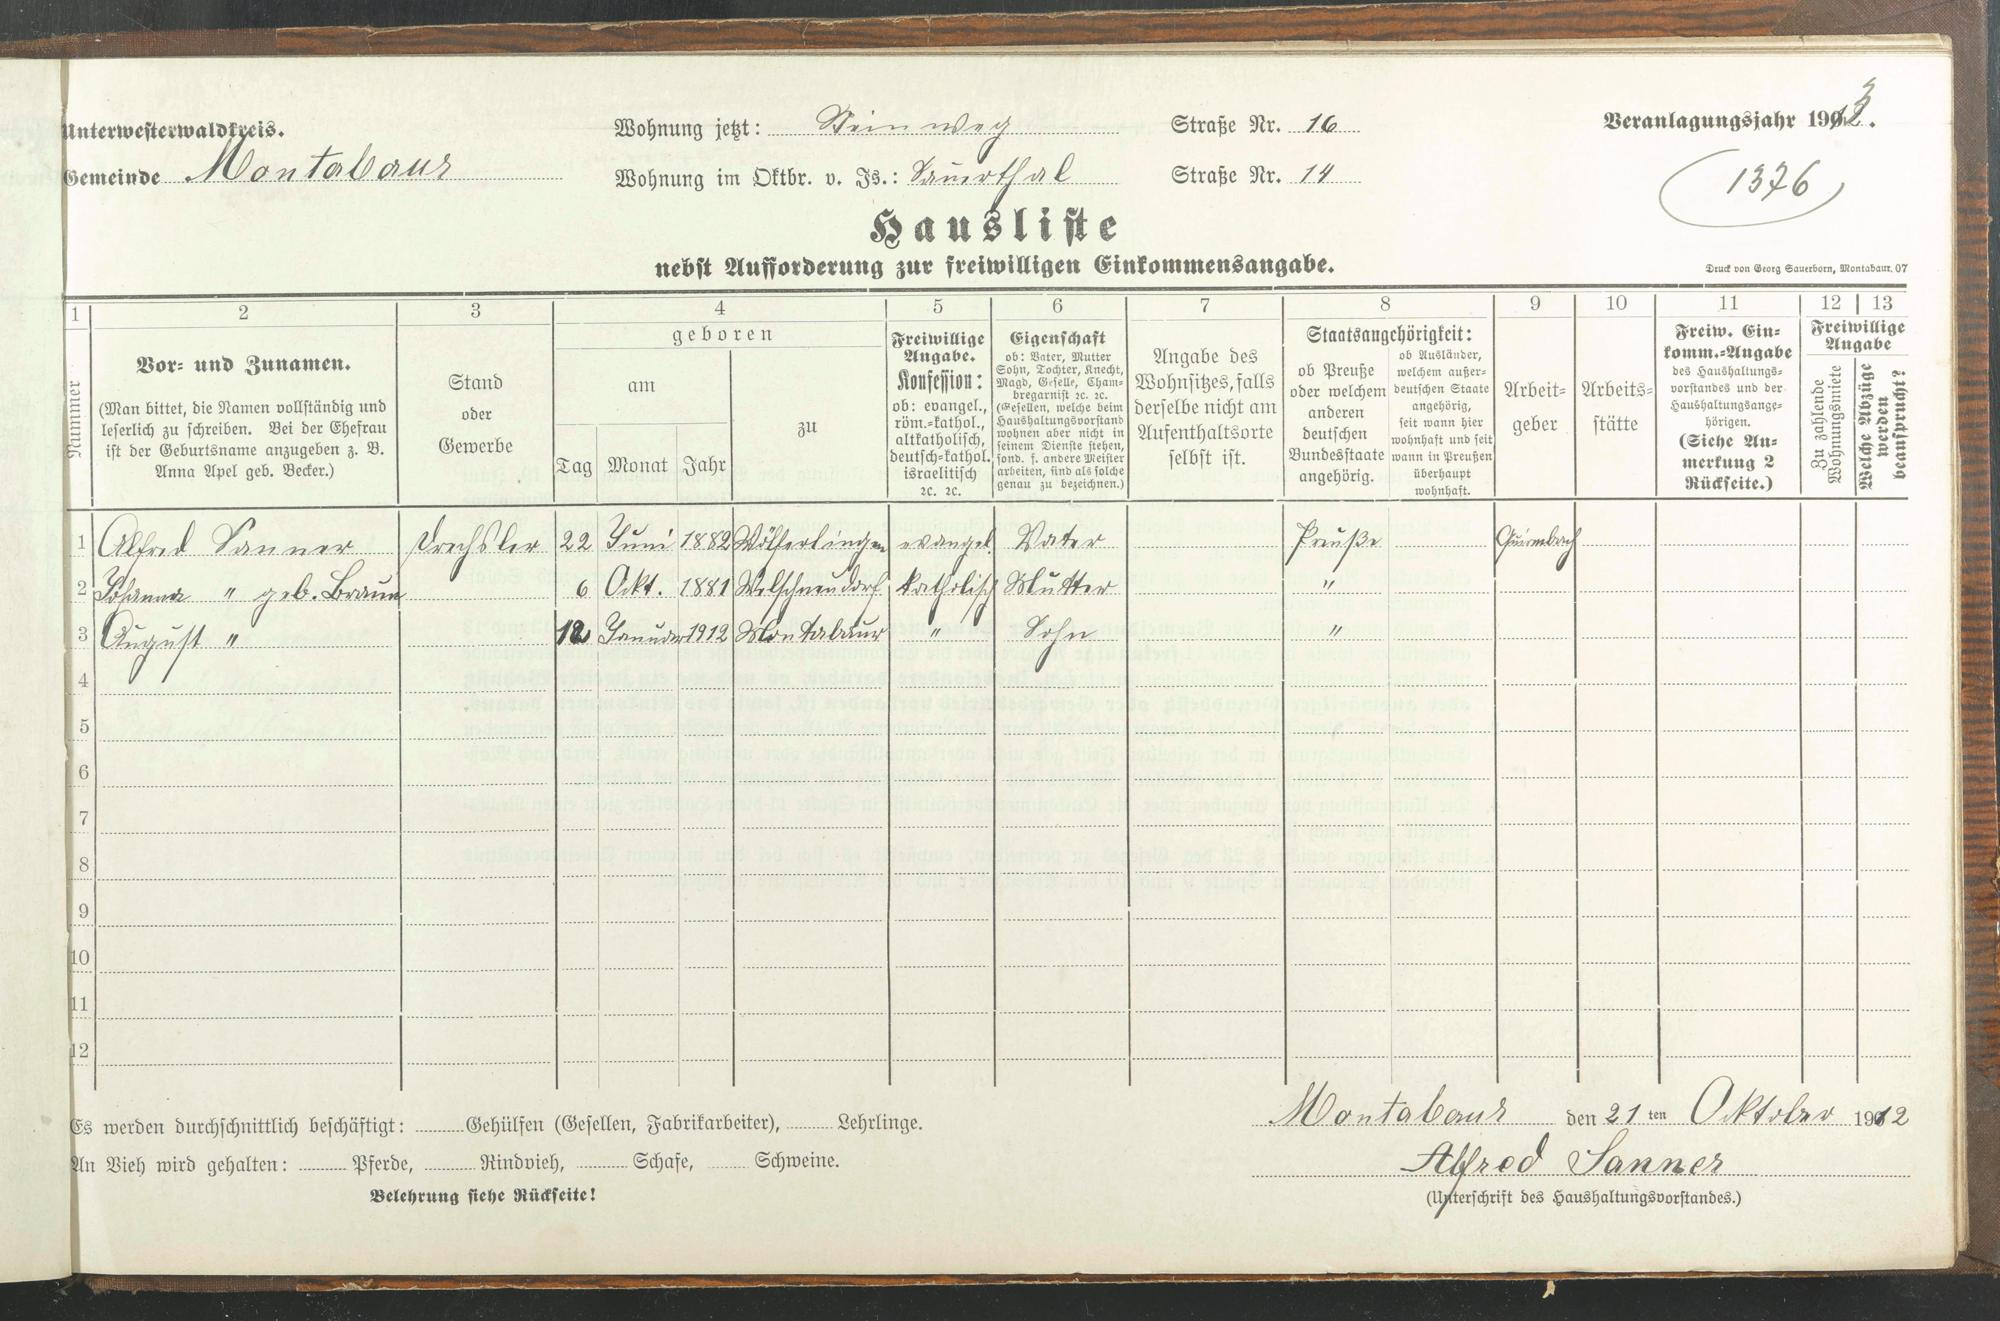 Unterwesterwaldkreis.
Gemeinde Montabaur
Wohnung jetzt: Steinweg Straße Nr. 16
Wohnung im Oktbr. v. Js.: Sauerthal Straße Nr. 14
Veranlagungsjahr 1913.
1376
Hausliste
nebst Aufforderung zur freiwilligen Einkommensangabe.
Druck von Georg Sauerborn, Montabaur. 07
1 2 3 4 5 6 7 8 9 10 11 12 13
Nummer
Vor- und Zunamen.
(Man bittet, die Namen vollständig und
leserlich zu schreiben. Bei der Ehefrau
ist der Geburtsname anzugeben z. B.
Anna Apel geb. Becker.)
Stand
oder
Gewerbe
geboren
am
Tag Monat Jahr
zu
Freiwillige
Angabe.
Konfession:
ob: evangel.,
röm.-kathol.,
altkatholisch,
deutsch-kathol.
israelitisch
ec. ec.
Eigenschaft
ob: Vater, Mutter
Sohn, Tochter, Knecht,
Magd, Geselle, Cham-
bregarnist ec. ec.
(Gesellen, welche beim
Haushaltungsvorstand
wohnen aber nicht in
seinem Dienste stehen,
sond. f. andere Meister
arbeiten, sind als solche
genau zu bezeichnen.)
Angabe des
Wohnsitzes, falls
derselbe nicht am
Aufenthaltsorte
selbst ist.
Staatsangehörigkeit:
ob Preuße
oder welchem
anderen
deutschen
Bundesstaate
angehörig.
ob Ausländer,
welchem außer-
deutschen Staate
angehörig,
seit wann hier
wohnhaft und seit
wann in Preußen
überhaupt
wohnhaft.
Arbeit-
geber
Arbeits-
stätte
Freiw. Ein-
komm.-Angabe
des Haushaltungs-
vorstandes und der
Haushaltungsange-
hörigen.
(Siehe An-
merkung 2
Rückseite.)
Freiwillige
Angabe
Zu zahlende
Wohnungsmiete
Welche Abzüge
werden
beansprucht?
1 Alfred Sanner Drechsler 22 Juni 1882 Wölferlingen evangel. Vater Preuße Quirmbach
2 Johanna " geb. Braun 6 Okt. 1881 Welschneudorf katholisch Mutter "
3 August " 12 Januar 1912 Montabaur " Sohn "
4
5
6
7
8
9
10
11
12
Es werden durchschnittlich beschäftigt: Gehülfen (Gesellen, Fabrikarbeiter), Lehrlinge.
An Vieh wird gehalten: Pferde, Rindvieh, Schafe, Schweine.
Belehrung siehe Rückseite!
Montabaur den 21 ten Oktober 1912
Alfred Sanner
(Unterschrift des Haushaltungsvorstandes.)